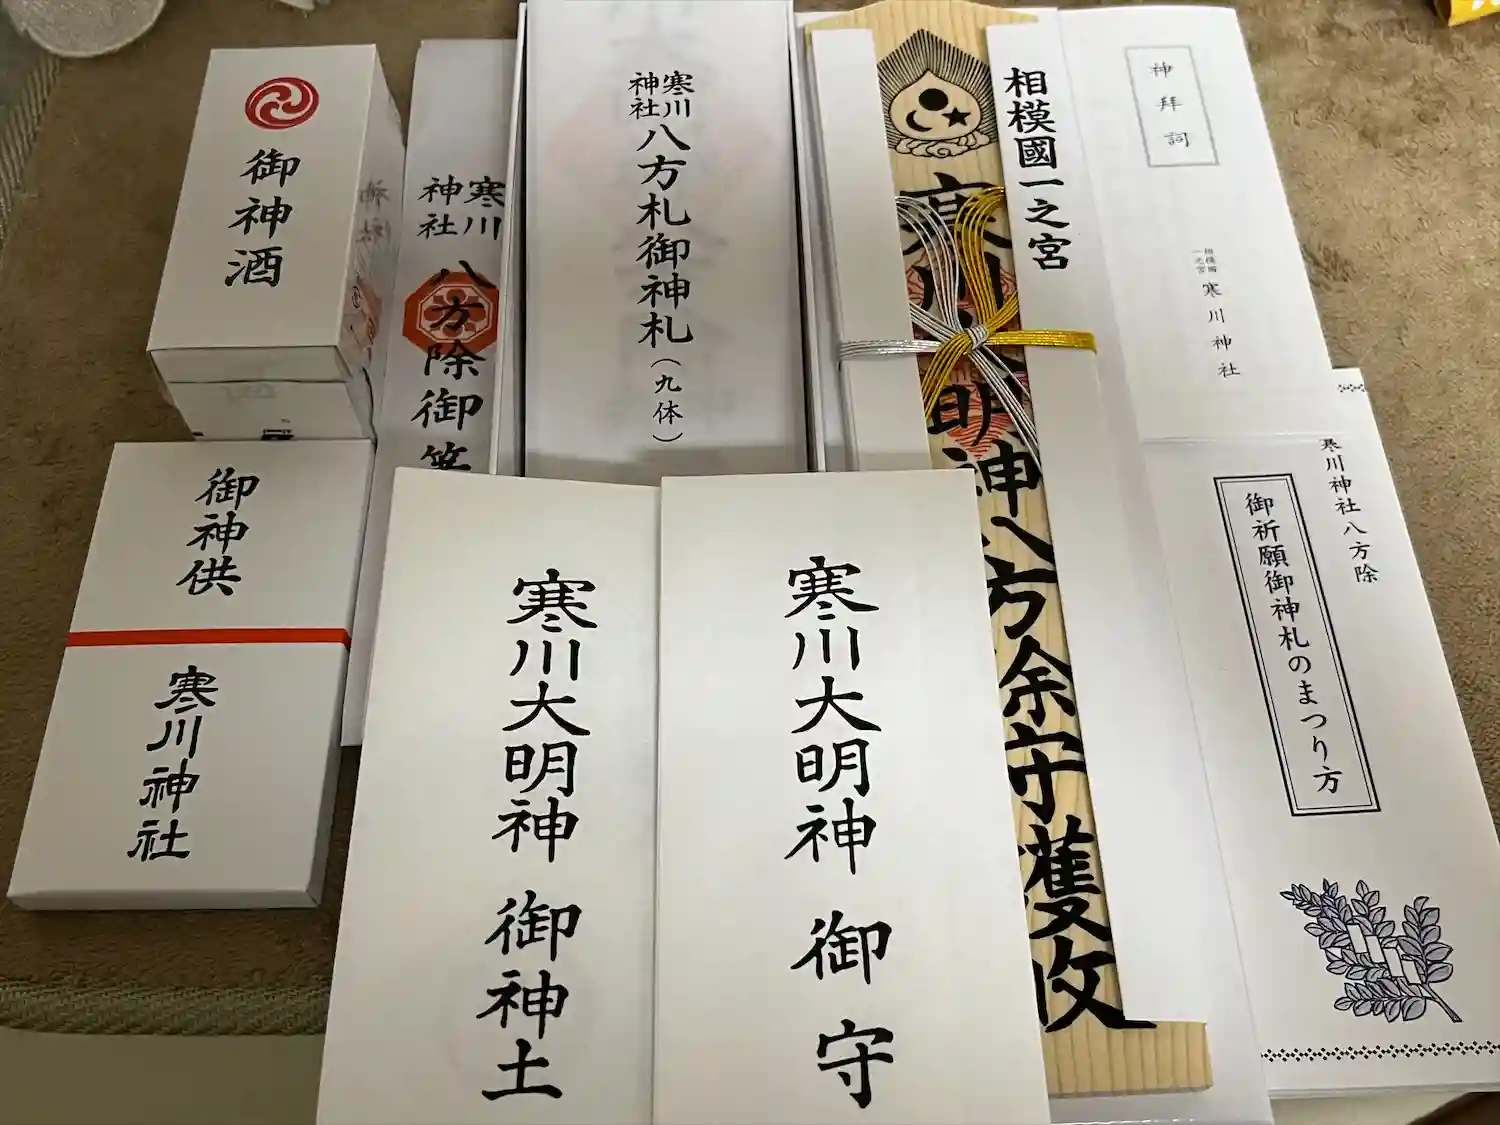 御神酒
寒川
神社
八方除御箸
寒川
神社
八方札御神札
（九体）
相模國一之宮
寒川大明神八方除守護攸
神拝詞
相模國
一之宮
寒川神社
寒川神社八方除
御祈願御神札のまつり方
御神供
寒川神社
寒川大明神 御神土
寒川大明神 御守